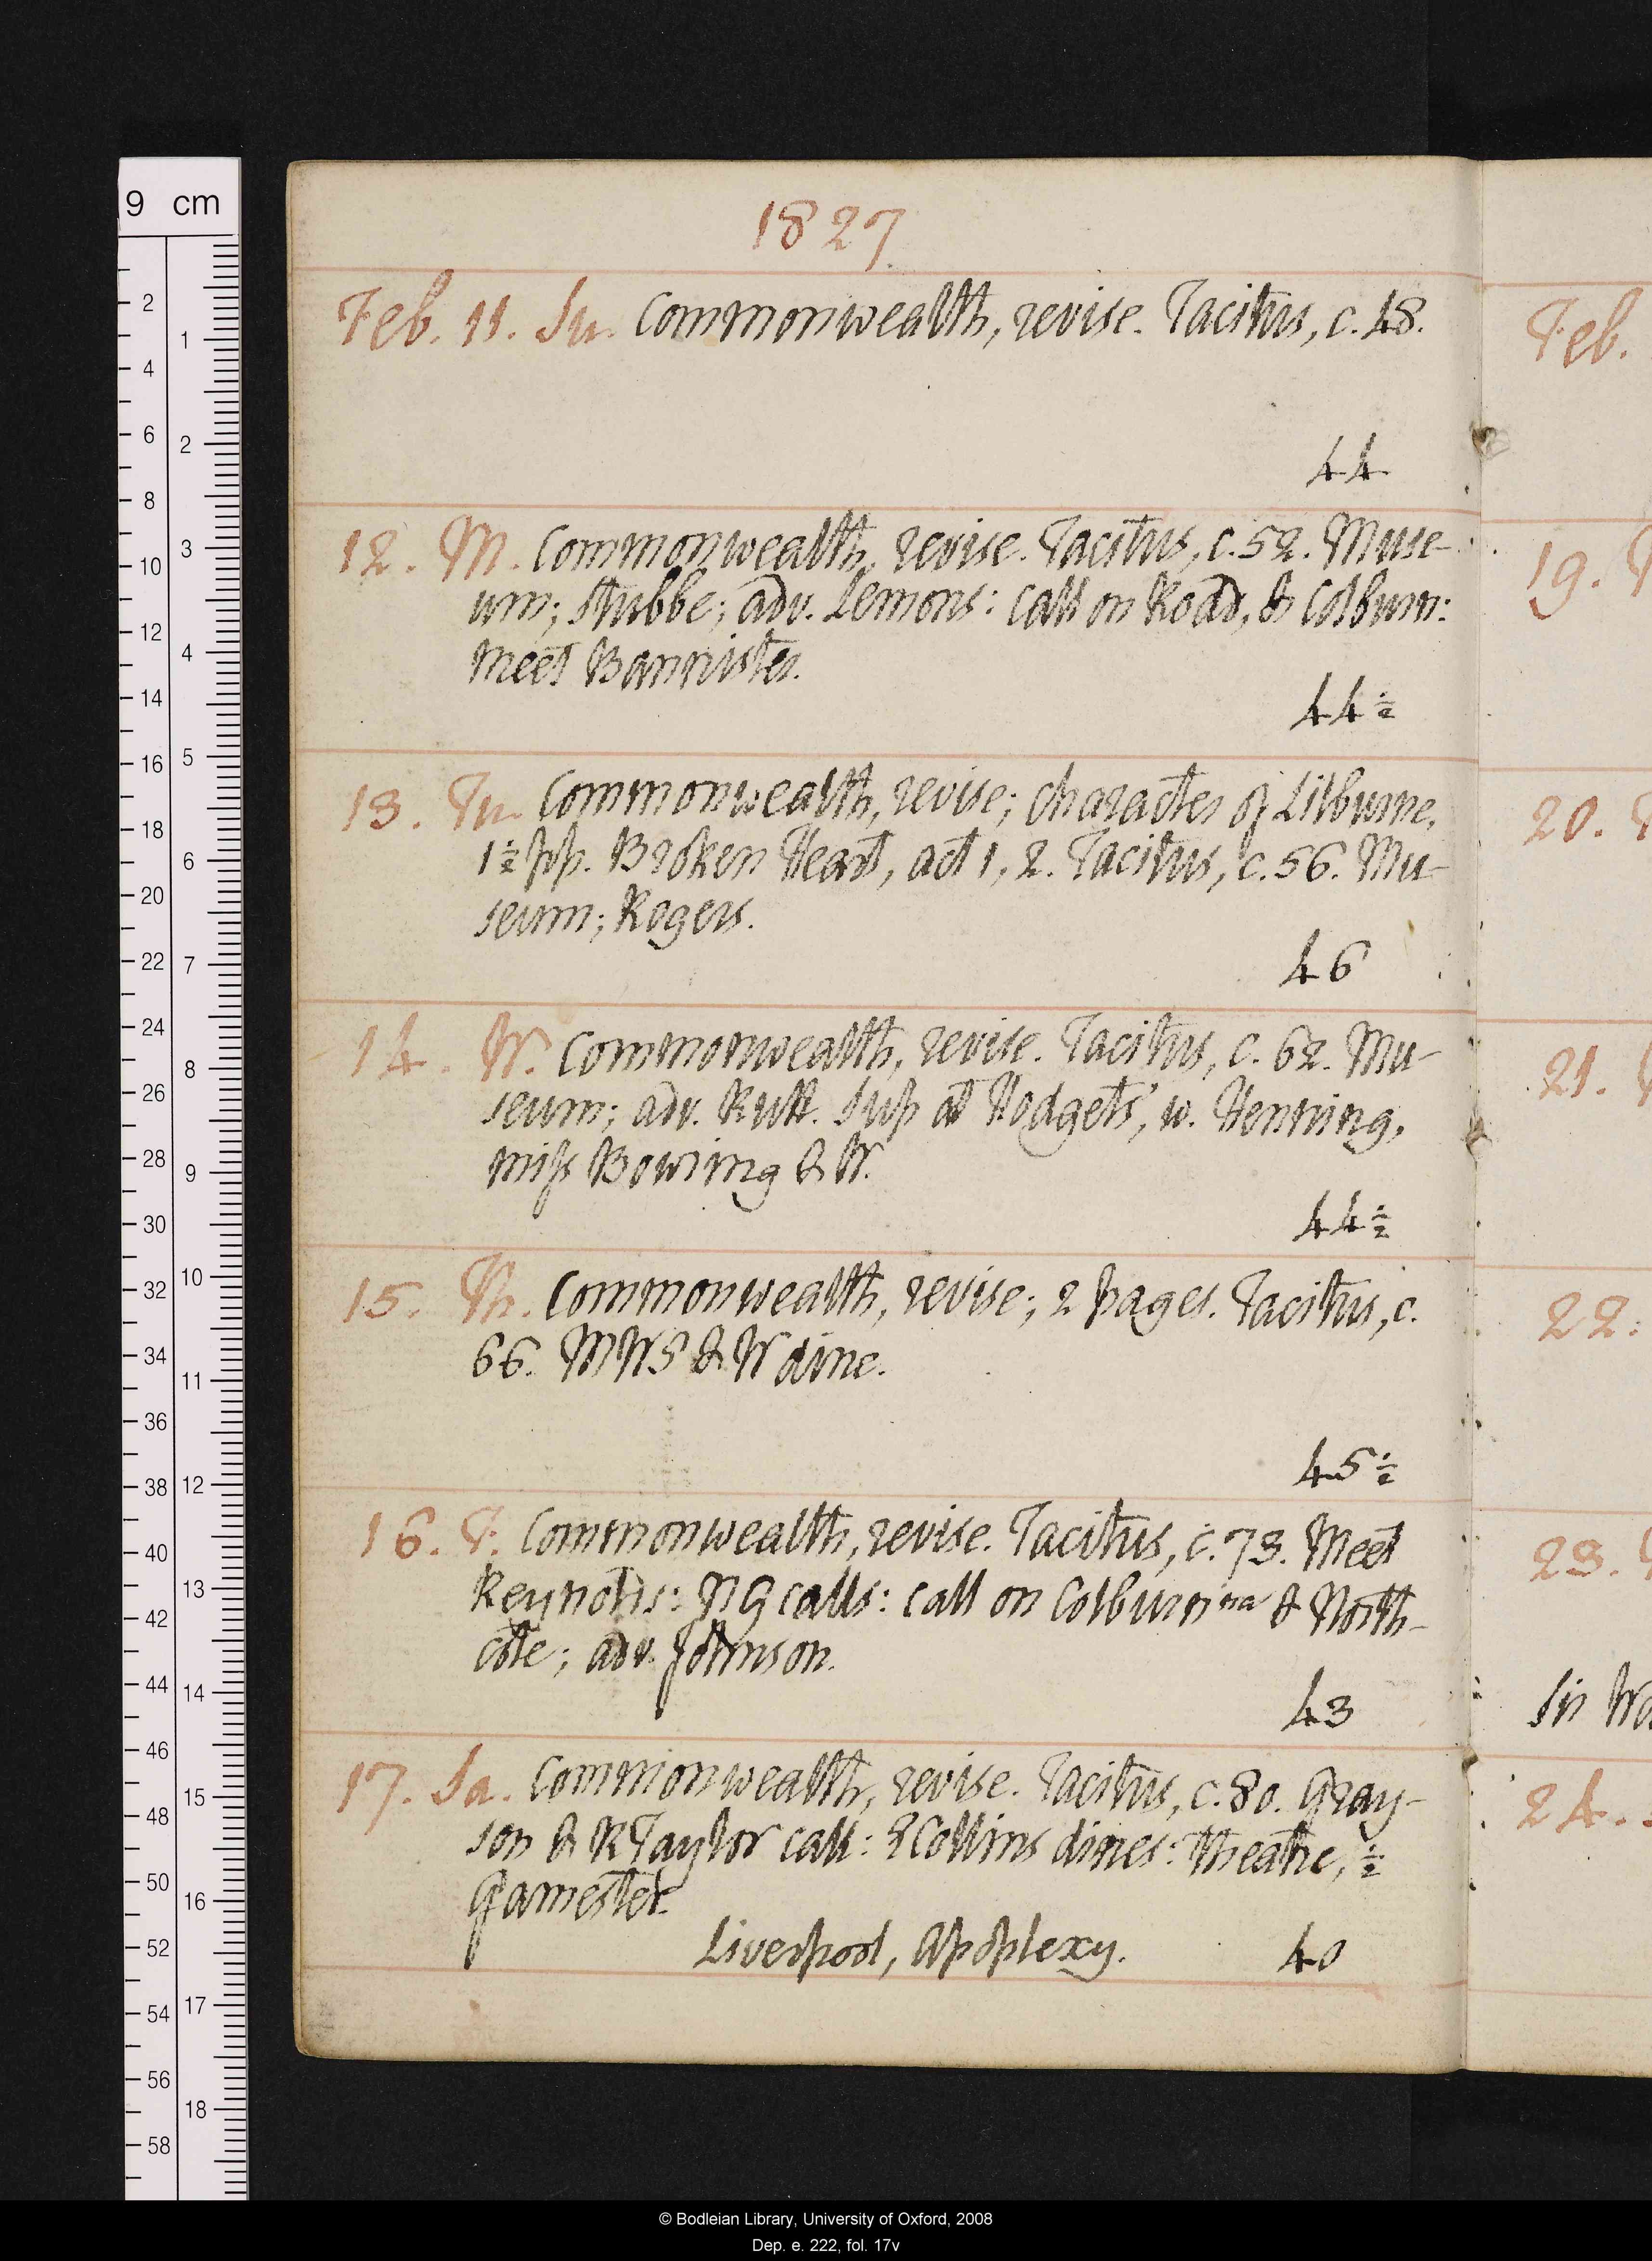 1827
Feb. 11. Su. Commonwealth, revise. Tacitus, c. 48.
44
12. M. Commonwealth, revise. Tacitus, c. 52. Muse-
um; Stubbe; adv. Lemons: call on Road, & Colburn:
meet Bannister.
44½
13. Tu. Commonwealth, revise; character of Lilburne,
1½ pp. Broken Heart, act 1, 2. Tacitus, c. 56. Mu-
seum; Rogers.
46
14. W. Commonwealth, revise. Tacitus, c. 62. Mu-
seum; adv. Rutt. Sup at Hodgets', w. Henning,
miss Bowring & W.
44½
15. Th. Commonwealth, revise; 2 pages. Tacitus, c.
66. MWS & W dine.
45½
16. F. Commonwealth, revise. Tacitus, c. 73. Meet
Reynolds: NG calls: call on Colburn na & North-
cote; adv. Johnson.
43
17. Sa. Commonwealth, revise. Tacitus, c. 80. Gray-
son & R Taylor call: Collins dines: theatre, ½
Gamester.
Liverpool, apoplexy. 40
Feb.
19.
20.
21.
22:
23.
Sir
24.
9 cm
2
4
6
8
10
12
14
16
18
20
22
24
26
28
30
32
34
36
38
40
42
44
46
48
50
52
54
56
58
1
2
3
4
5
6
7
8
9
10
11
12
13
14
15
16
17
18
© Bodleian Library, University of Oxford, 2008
Dep. e. 222, fol. 17v